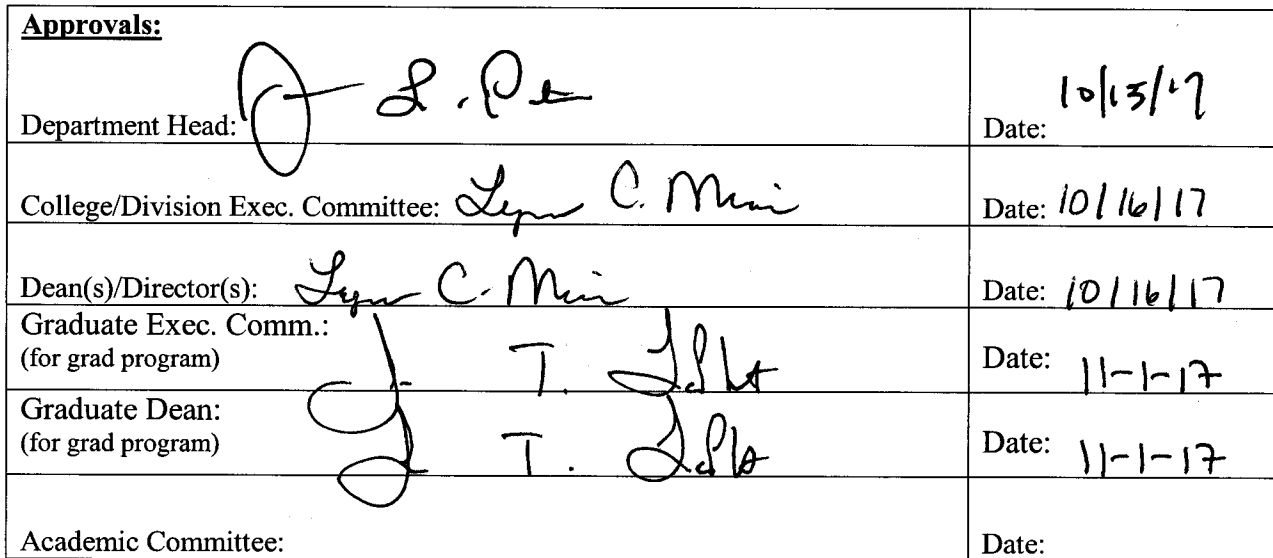 Approvals:
Department Head: Date: 10/13/17
College/Division Exec. Committee: Lynn C. Date: 10/16/17
Dean(s)/Director(s): Lynn C. Date: 10/16/17
Graduate Exec. Comm.:
(for grad program) T. Date: 11-1-17
Graduate Dean:
(for grad program) T. Date: 11-1-17
Academic Committee: Date: